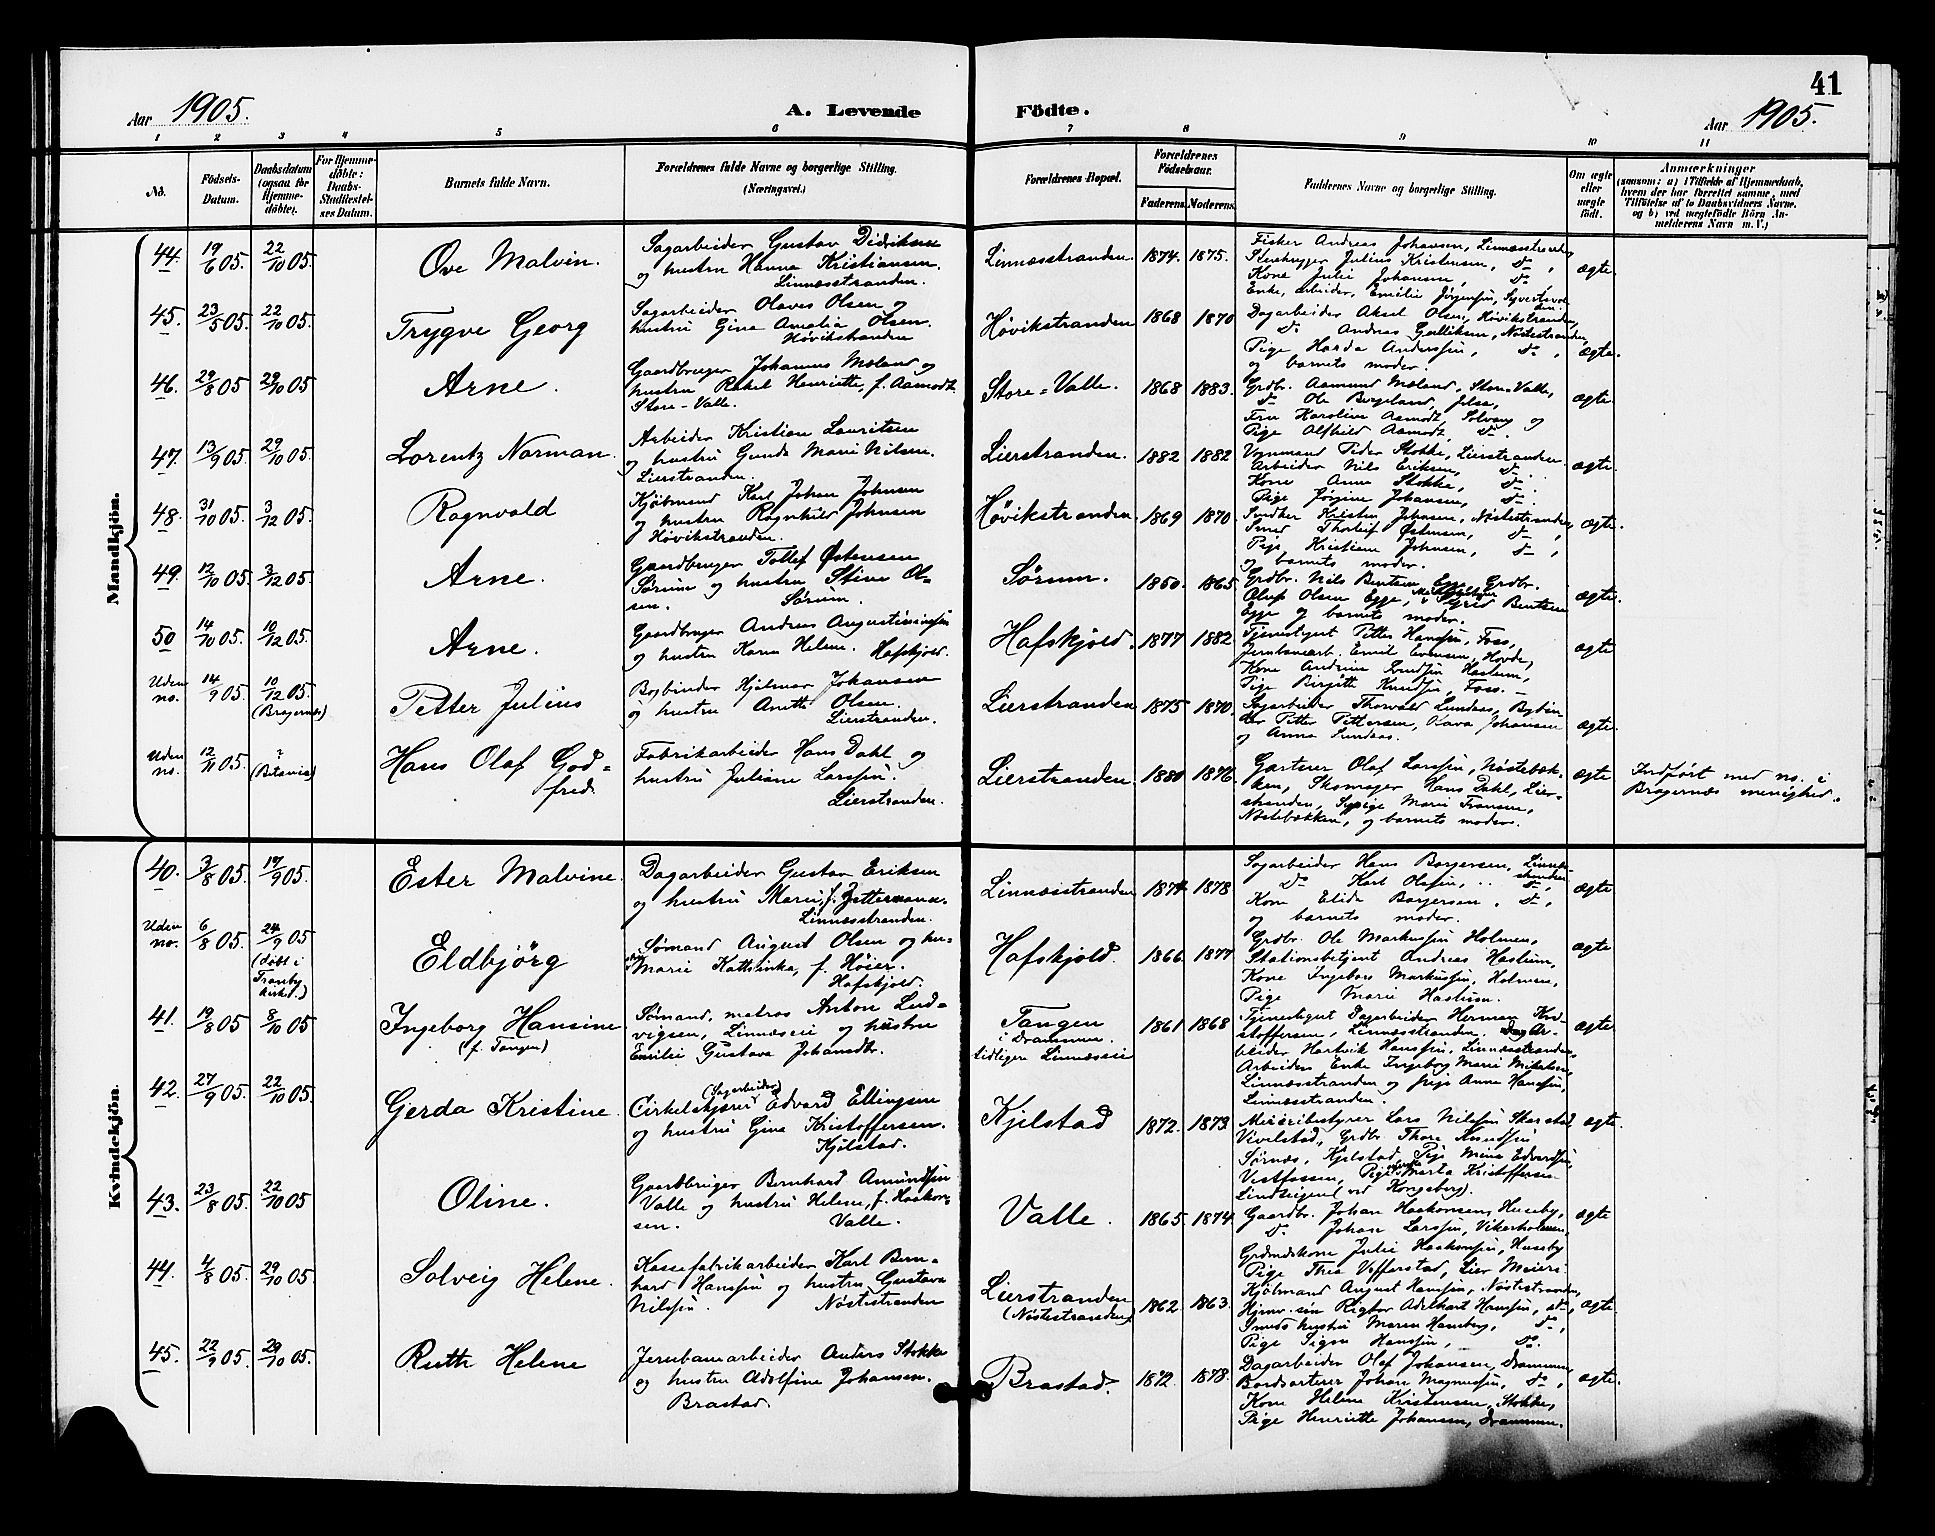 41
Aar 1905.
A. Levende Födte.
Aar 1905.
1 2 3 4 5 6 7 8 9 10 11
No. Födsels-Datum. Daabsdatum (ogsaa for Hjemme-døbte). For Hjemme-døbte: Daabs-Stadfæstel-ses Datum. Barnets fulde Navn. Forældrenes fulde Navne og borgerlige Stilling. (Næringsvei.) Forældrenes Bopæl. Forældrenes Födselsaar. Faderens. Moderens. Faddernes Navne og borgerlige Stilling. Om ægte eller uægte født. Anmærkninger
(saasom: a) i Tilfælde af Hjemmedaab,
hvem der har forrettet samme, med
Tilføielse af to Daabsvidners Navne,
og b) ved uægtefødte Börn An-
melderens Navn m. V.)
Mandkjön.
44. 19/6 05. 22/10 05. Ove Malvin.
Sagarbeider Gustav Didriksen
og hustru Hanna Kristiansen.
Linnæsstranden.
Linnæsstranden. 1874. 1875.
Fisker Andreas Johansen, Linnæsstranden,
Stenhugger Julius Kristensen, do,
Kone Julie Johansen, do
Enke, arbeider, Emilie Jørgensen,
ægte.
45. 23/5 05. 22/10 05. Trygve Georg
Sagarbeider Olaves Olsen og
hustru Gina Amalia Olsen.
Høvikstranden
Høvikstranden 1868 1870
Dagarbeider Aksel Olsen, Høvikstranden,
do Andreas Gulliksen, Nøstestranden,
Pige Harda Anderssen, do,
og barnets moder.
ægte.
46. 29/8 05 29/10 05. Arne.
Gaardbruger Johannes Mæland og
hustru Rakel Henriette, f. Aamodt
Store-Valle.
Store-Valle. 1868 1883.
Grdbr. Aamund Mæland, Store-Valle,
do Ole Bergeland, Jelsa,
Fru Karoline Aamodt, Solvang og
Pige Alfhild Aamodt, do.
ægte.
47. 13/9 05. 29/10 05. Lorentz Norman.
Arbeider Kristian Lauritsen
og hustru Gunda Marie Nilsen.
Lierstranden.
Lierstranden. 1882 1882
Vognmand Peder Stokke, Lierstranden.
Arbeider Nils Eriksen, do.
Kone Anna Stokke, do.
Pige Jørgine Johansen, do.
ægte.
48. 31/10 05. 3/12 05. Ragnvald
Kjøbmand Karl Johan Johnsen
og hustru Ragnhild Johnsen
Høvikstranden.
Høvikstranden. 1869 1870.
Snedker Kristen Johnsen, Nøstestranden,
Smed Thorleif Østensen, do,
Pige Kristiane Johnsen, do,
og barnets moder.
ægte.
49. 12/10 05. 3/12 05. Arne.
Gaardbruger Tollef Østensen
Sørum og hustru Stine Ol-
sen. Sørum.
Sørum. 1860. 1865.
Grdbr. Nils Bentsen Egge, Grdbr.
Oluf Olsen Egge, Sigrid Bentsen
Egge og barnets moder.
ægte.
50 14/10 05. 10/12 05. Arne.
Gaardbruger Andreas Augustinussen
og hustru Karen Helene. Hafskjold.
Hafskjold. 1877 1882.
Tjenestegut Petter Hanssen, Foss,
Jernbanearb. Emil Evensen, Hovde,
Kone Andrine Knudsen Haslum,
Pige Birgitte Knudsen, Foss.
ægte
Uden no. 14/9 05. 10/12 05. (Bragernæs) Petter Julius
Bogbinder Hjalmar Johansen
og hustru Anette Olsen.
Lierstranden.
Lierstranden 1875 1870.
Sagarbeider Thorvald Lundaas, Bogbin-
der Petter Pettersen, Kava Johansen
og Anna Lundaas.
ægte
Uden no. 12/11 05. ? (Betania) Hans Olaf God-
fred.
Fabrikarbeider Hans Dahl og
hustru Juliane Larssen.
Lierstranden.
Lierstranden. 1880 1876.
Gartner Olaf Larssen, Nøstebæk-
ken, Skomager Hans Dahl, Lier-
stranden, Sypige Marie Fransen,
Nøstebækken, og barnets moder.
ægte
Indført med no. i
Bragernæs menighed.
Kvindekjön.
40. 3/8 05. 17/9 05. Ester Malvine.
Dagarbeider Gustav Eriksen
og hustru Marie, f. Zettermann.
Linnæsstranden.
Linnæsstranden 1874. 1878
Sagarbeider Hans Borgersen, Linnæs-
stranden
do Karl Olsen, do,
Kone Elida Borgersen, do,
og barnets moder.
ægte
Uden no. 6/8 05. 24/9 05 (døbt i Tranby kirke.) Eldbjörg
Sømand August Olsen og hu-
stru Marie Kattinka, f. Høier.
Hafskjold.
Hafskjold. 1866 1877
Grdbr. Ole Markussen Holmen,
Stationsbetjent Andreas Haslum,
Kone Ingeborg Markussen, Holmen,
Pige Marie Haslum.
ægte
41. 19/8 05 8/10 05 Ingeborg Hansine
(f. Tangen)
Sømand, matros Anton Lud-
vigsen, Linnæsøi og hustru
Emilie Gustava Johansdtr.
Tangen
i Drammen.
tidligere Linnæsøi
1861 1868
Tjenestegut Dagarbeider Herman Kri-
stoffersen, Linnæsstranden, Ar-
beider Hartvik Hanssen, Linnæsstranden,
Arbeiders Enke Ingeborg Marie Mikelsen,
Linnæsstranden og pige Anna Hanssen,
Linnæsstranden.
ægte
42. 27/9 05 22/10 05. Gerda Kristine.
(Sagarbeider)
Cirkelskjærer Edvard Ellingsen
og hustru Gina Kristoffersen.
Kjelstad.
Kjelstad 1872. 1873
Meieribestyrer Lars Nilssen Skarstad
Vivelstad, Grdbr. Thore Knudsen
Sørnæs, Kjelstad, Pige Mina Edvardsen,
Vestfossen, Pige Marta Kristoffersen
Lindseigend ved Kongsberg).
ægte.
43. 23/8 05 22/10 05 Oline.
Gaardbruger Bernhard Amundsen
Valle og hustru Helene, f. Haakon-
sen. Valle.
Valle. 1865. 1874.
Gaardbr. Johan Haakonsen, Huseby,
do Johan Larssen, Vikerholmen,
Grdmdskone Julie Haakonsen, Huseby
Pige Thea Vefferstad, Lier Meieri
ægte
44. 4/8 05. 29/10 05. Solveig Helene.
Kassefabrikarbeider Karl Bern-
hard Hanssen og hustru Gustava
Nilssen. Nøstestranden
Lierstranden
(Nøstestranden)
1862 1863.
Kjøbmand August Hanssen, Nøstestranden,
Hjmv. søn Rigtor Adelhart Hanssen, do,
Smeds hustru Maren Hansberg, do,
Pige Signe Hanssen, do.
ægte
45. 22/9 05. 29/10 05. Ruth Helene
Jernbanearbeider Anders Stokke
og hustru Adolfine Johansen.
Brastad.
Brastad. 1872. 1878.
Dagarbeider Olaf Johansen, Drammen,
Bordsorterer Johan Magnussen, do,
Kone Helene Kristensen, Stokke,
Pige Henriette Johansen, Drammen.
ægte.